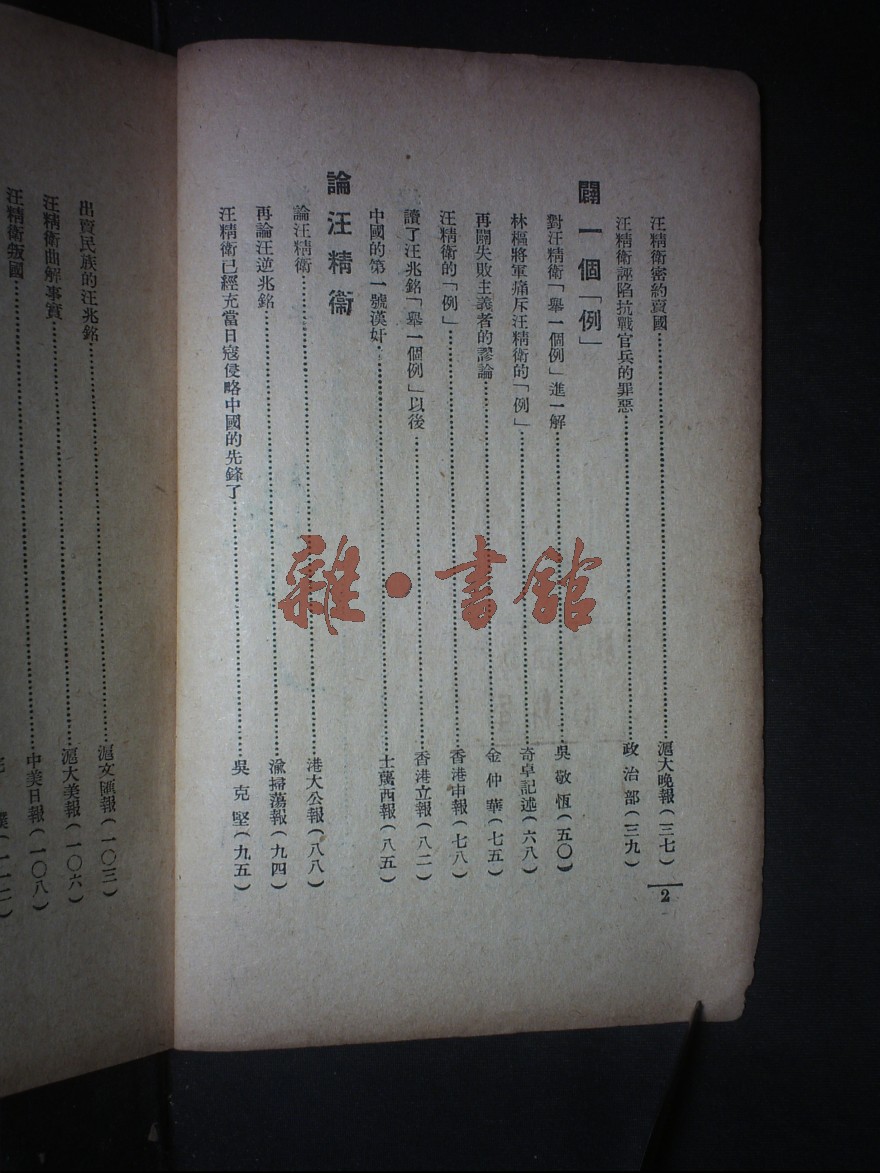 汪精衛密約賣國…………滬大晚報(三七)
汪精衛誣陷抗戰官兵的罪惡…………政治部(三九)
闢一個「例」
對汪精衛「舉一個例」進一解…………吳敬恆(五〇)
林樞將軍痛斥汪精衛的「例」…………奇卓記述(六八)
再闢失敗主義者的謬論…………金仲華(七五)
汪精衛的「例」…………香港申報(七八)
讀了汪兆銘「舉一個例」以後…………香港立報(八二)
中國的第一號漢奸…………士蔑西報(八五)
論汪精衞
論汪精衛…………港大公報(八八)
再論汪逆兆銘…………渝掃蕩報(九四)
汪精衛已經充當日寇侵略中國的先鋒了…………吳克堅(九五)
2
出賣民族的汪兆銘…………滬文匯報(一〇三)
汪精衛曲解事實…………滬大美報(一〇六)
汪精衛叛國…………中美日報(一〇八)
雜·書館